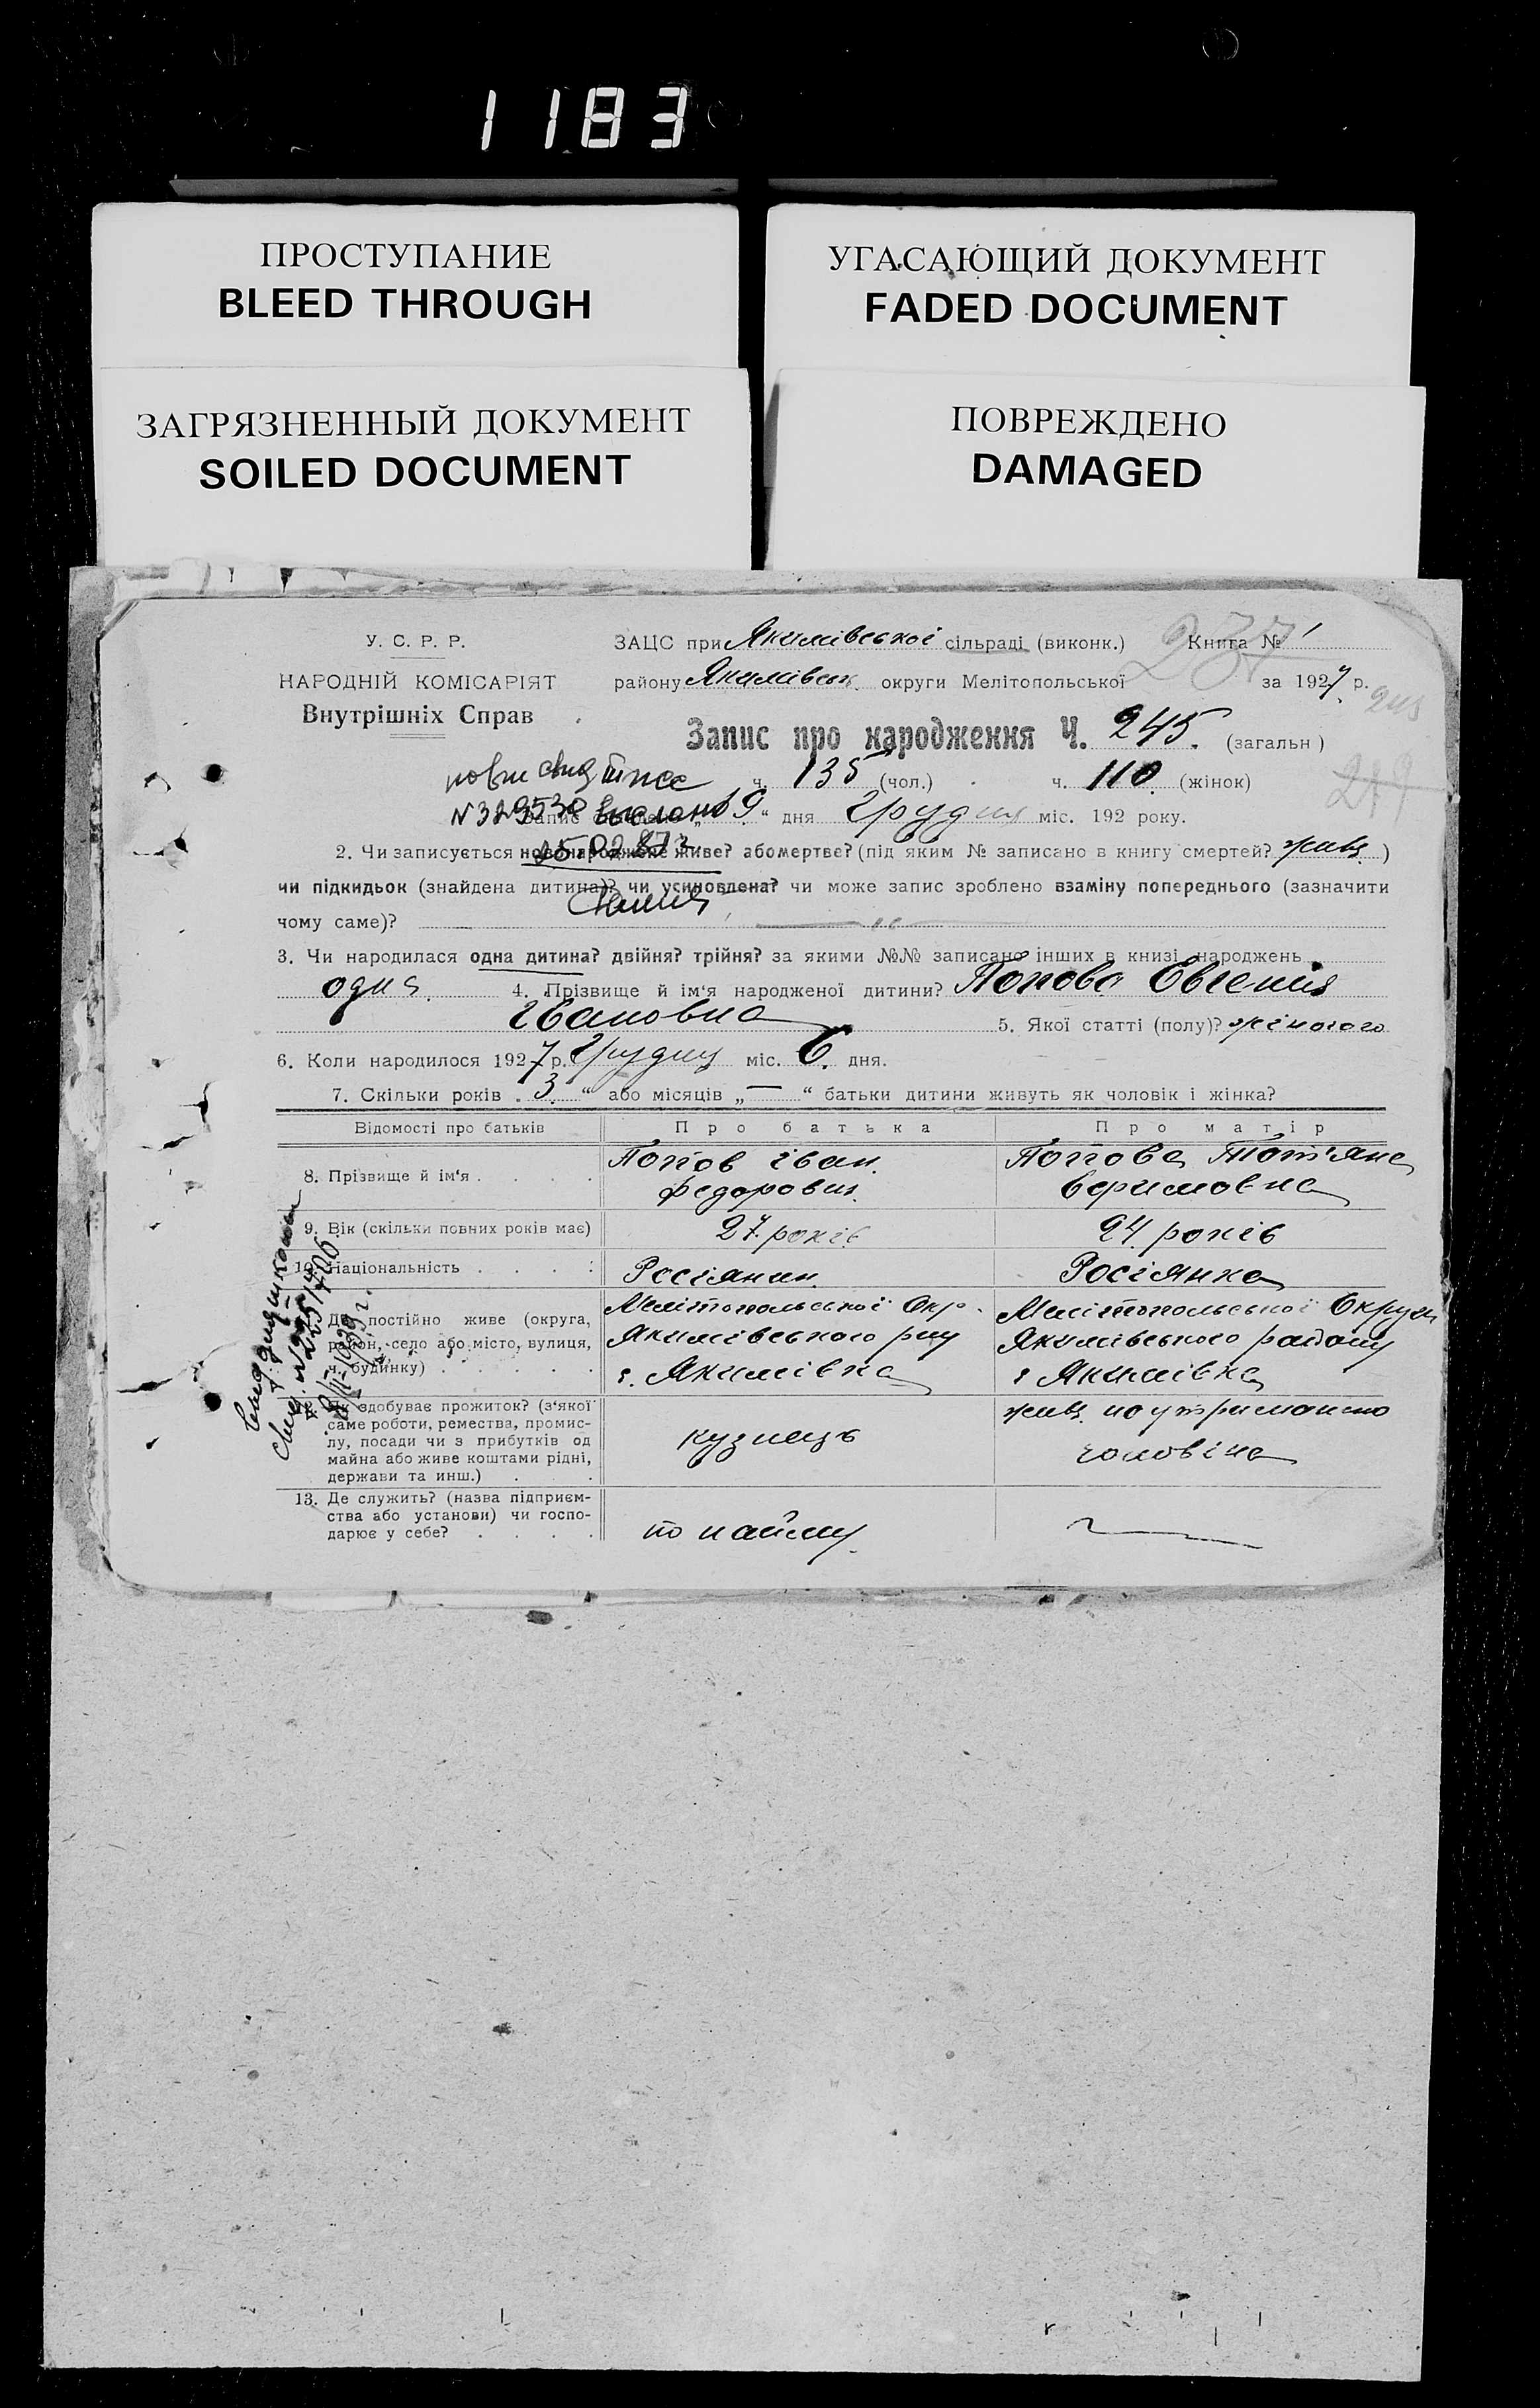 1183
ПРОСТУПАНИЕ
BLEED THROUGH
УГАСАЮЩИЙ ДОКУМЕНТ
FADED DOCUMENT
ЗАГРЯЗНЕННЫЙ ДОКУМЕНТ
SOILED DOCUMENT
ПОВРЕЖДЕНО
DAMAGED
У. С. Р. Р.
НАРОДНІЙ КОМІСАРІЯТ
Внутрішніх Справ
ЗАЦС при Якимівської сільраді (виконк.) Книга № 1
району Якимівськ. округи Мелітопольської за 1927 р.
237
Запис про народження Ч. 245. (загальн)
ч. 135 (чол.) ч. 110 (жінок)
N 329530 выслано
15.02.87г.
Запис 19 " дня Грудня міс. 192 року.
2. Чи записується новонароджене живе? або мертве? (під яким № записано в книгу смертей? )
чи підкидьок (знайдена дитина)? чи усиновлена? чи може запис зроблено взаміну попереднього (зазначити
чому саме)?
3. Чи народилася одна дитина? двійня? трійня? за якими №№ записано інших в книзі народжень
одна. 4. Прізвище й ім'я народженої дитини? Попова Евгения
Івановна 5. Якої статті (полу)? жіночого
6. Коли народилося 1927 р. Грудня міс. 6. дня.
7. Скільки років „ 3 " або місяців „ — " батьки дитини живуть як чоловік і жінка?
Відомості про батьків Про батька Про матір
8. Прізвище й ім'я . . . . Попов Іван. Федорович. Попова Тот'яна
9. Вік (скільки повних років має) 27 років 24 років
10. Національність . . . . Росіянин. Росіянка
11. Де постійно живе (округа, район, село або місто, вулиця, ч. будинку) . . . . Мелітопольської Окр. Якимівського р-ну с. Якимівка Мелітопольської Округи Якимівського району с Якимівка
12. Як здобуває прожиток? (з'якої саме роботи, ремества, промислу, посади чи з прибутків од майна або живе коштами рідні, держави та инш.) . . . кузнець на утриманню чоловіка
13. Де служить? (назва підприємства або установи) чи господарює у себе? . . . . по найму.